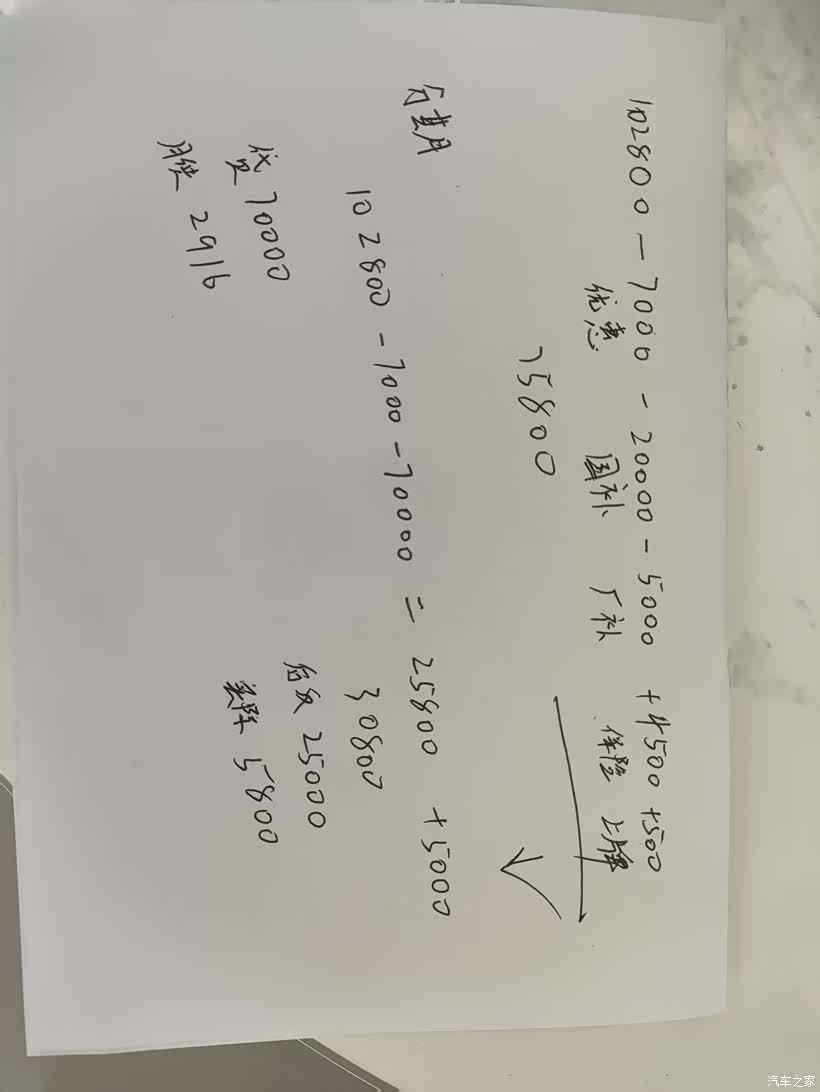 102800 - 7000 - 20000 - 5000 + 4500 + 500
优惠 国补 厂补 保险 上牌
75800
分其月
102800 - 7000 - 70000 = 25800 + 5000
30800
贷足 70000
月供 2916
25000
实际 5800
汽车之家